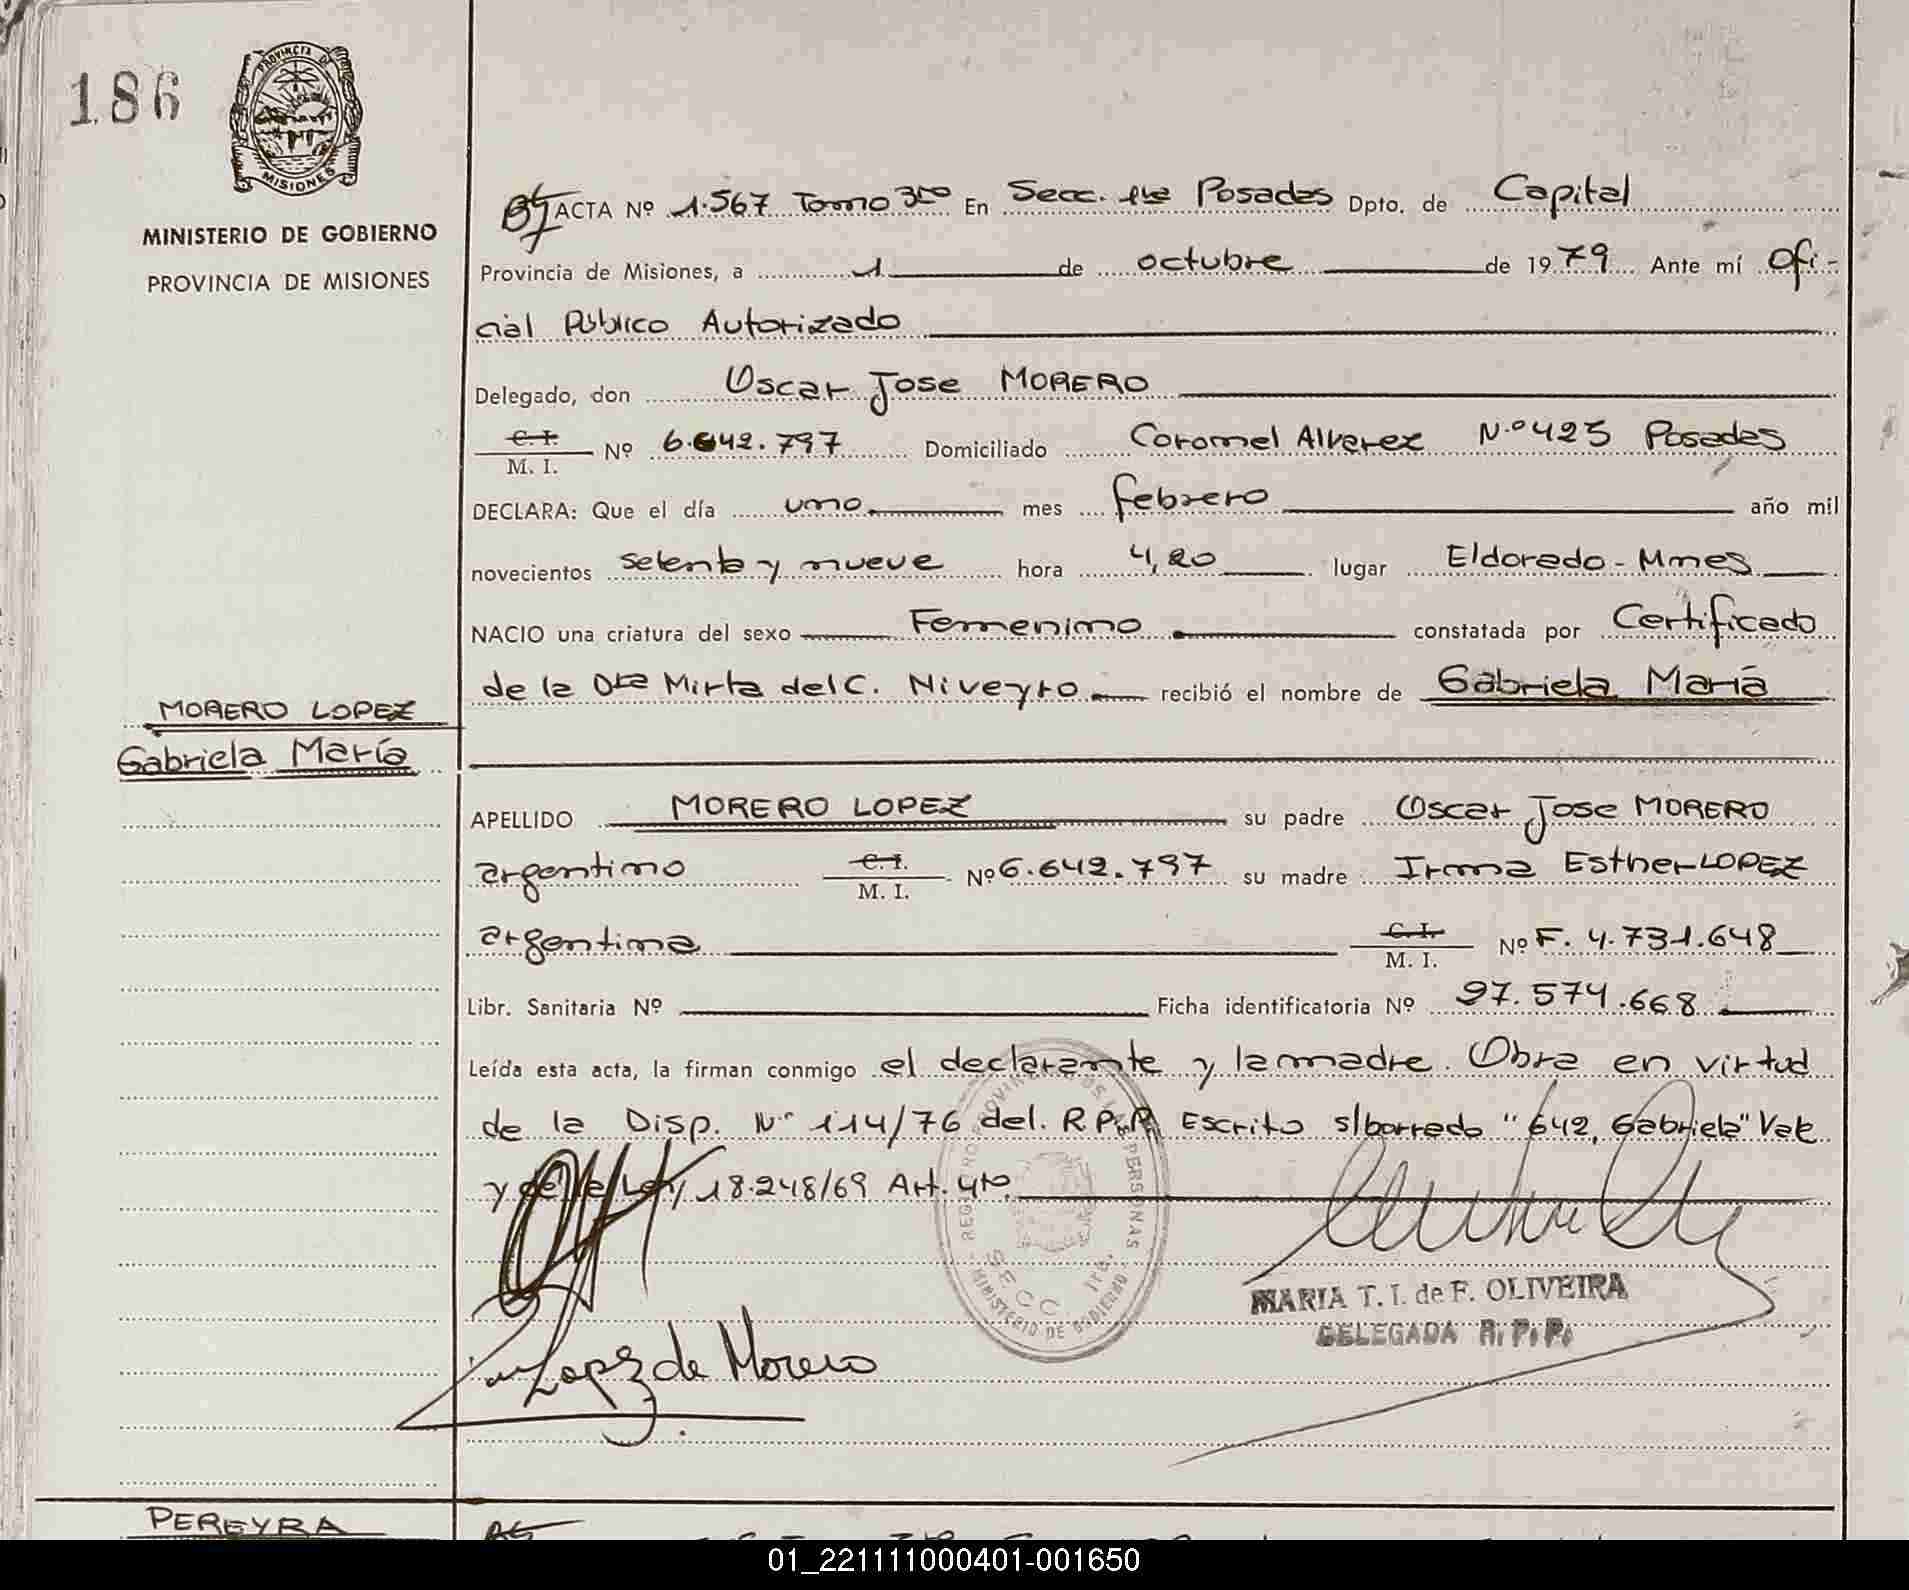 186
PROVINCIA DE
MISIONES
MINISTERIO DE GOBIERNO
PROVINCIA DE MISIONES
ACTA Nº 1.567 Tomo 3ro En Secc. 1ra Posadas Dpto. de Capital
Provincia de Misiones, a 1 de octubre de 1979 Ante mí Ofi-
cial Público Autorizado
Delegado, don Oscar Jose MORERO
C. I.
M. I. Nº 6.642.797 Domiciliado Coronel Alverez N.º 425 Posadas
DECLARA: Que el día uno mes febrero año mil
novecientos setenta y nueve hora 4,20 lugar Eldorado - Mnes
NACIO una criatura del sexo Femenino constatada por Certificado
de la Dra Mirta del C. Niveyro recibió el nombre de Gabriela María
MORERO LOPEZ
Gabriela María
APELLIDO MORERO LOPEZ su padre Oscar Jose MORERO
argentino C. I. M. I. Nº 6.642.797 su madre Irma Esther LOPEZ
argentina C. I. M. I. Nº F. 4.731.648
Libr. Sanitaria Nº Ficha identificatoria Nº 27.574.668
Leída esta acta, la firman conmigo el declarante y la madre. Obra en virtud
de la Disp. Nº 114/76 del. R.P.P. Escrito s/borrado "642, Gabriela" Vale
y de la Ley 18.248/69 Art. 4to.
REGISTRO PROVINCIAL DE LAS PERSONAS
SECC. 1ra.
MINISTERIO DE GOBIERNO
MARIA T. I. de F. OLIVEIRA
DELEGADA R. P. P.
Lopez de Morero
PEREYRA
01_221111000401-001650